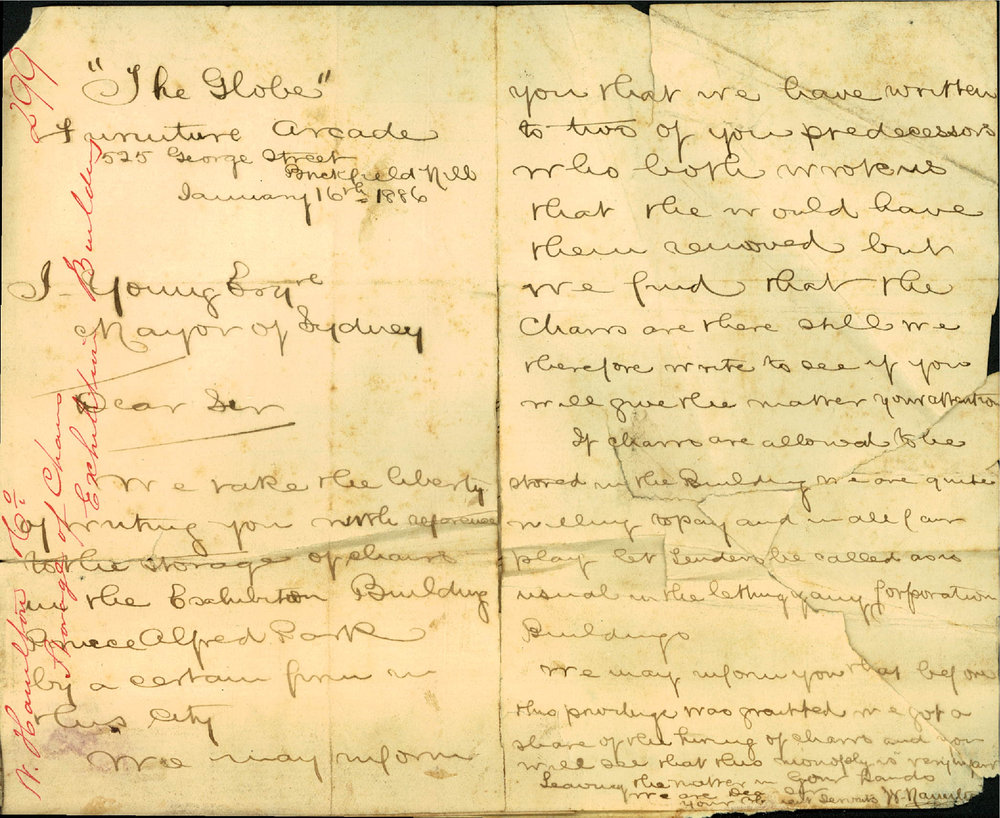 "The Globe"
Furniture Arcade
525 George Street
Brickfield Hill
January 16th 1886
J. Young Esqre
Mayor of Sydney
Dear Sir
We take the liberty
of writing you with reference
to the storage of chairs
in the Exhibition Building
Prince Alfred Park
by a certain firm in
this City
We may inform
you that we have written
to two of you predecessors
who both wrote us
that the would have
them removed but
we find that the
Chairs are there still we
therefore write to see if you
will give the matter your attention
If chairs are allowed to be
stored in the Building we are quite
willing to pay and in all fair
play let tenders be called as is
usual in the letting of any Corporation
Buildings
We may inform you that before
this privilege was granted we got a
share of the hiring of chairs and you
will see that this monopoly is very unfair
Leaving the matter in your hands
We are Dear Sir
your servants W. Hamilton
299
W. Hamilton & Co.
Storage of Chairs
Exhibition Building